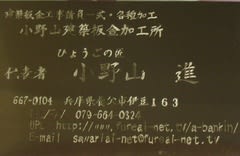 建築板金工事請負一式・各種加工
小野山建築板金加工所
ひょうごの匠
代表者 小野山 進
667-0104 兵庫県養父市伊豆163
079-664-0324
URL http://www.fureai-net.tv/a-bankin/
E-mail sawariai-net@fureai-net.tv